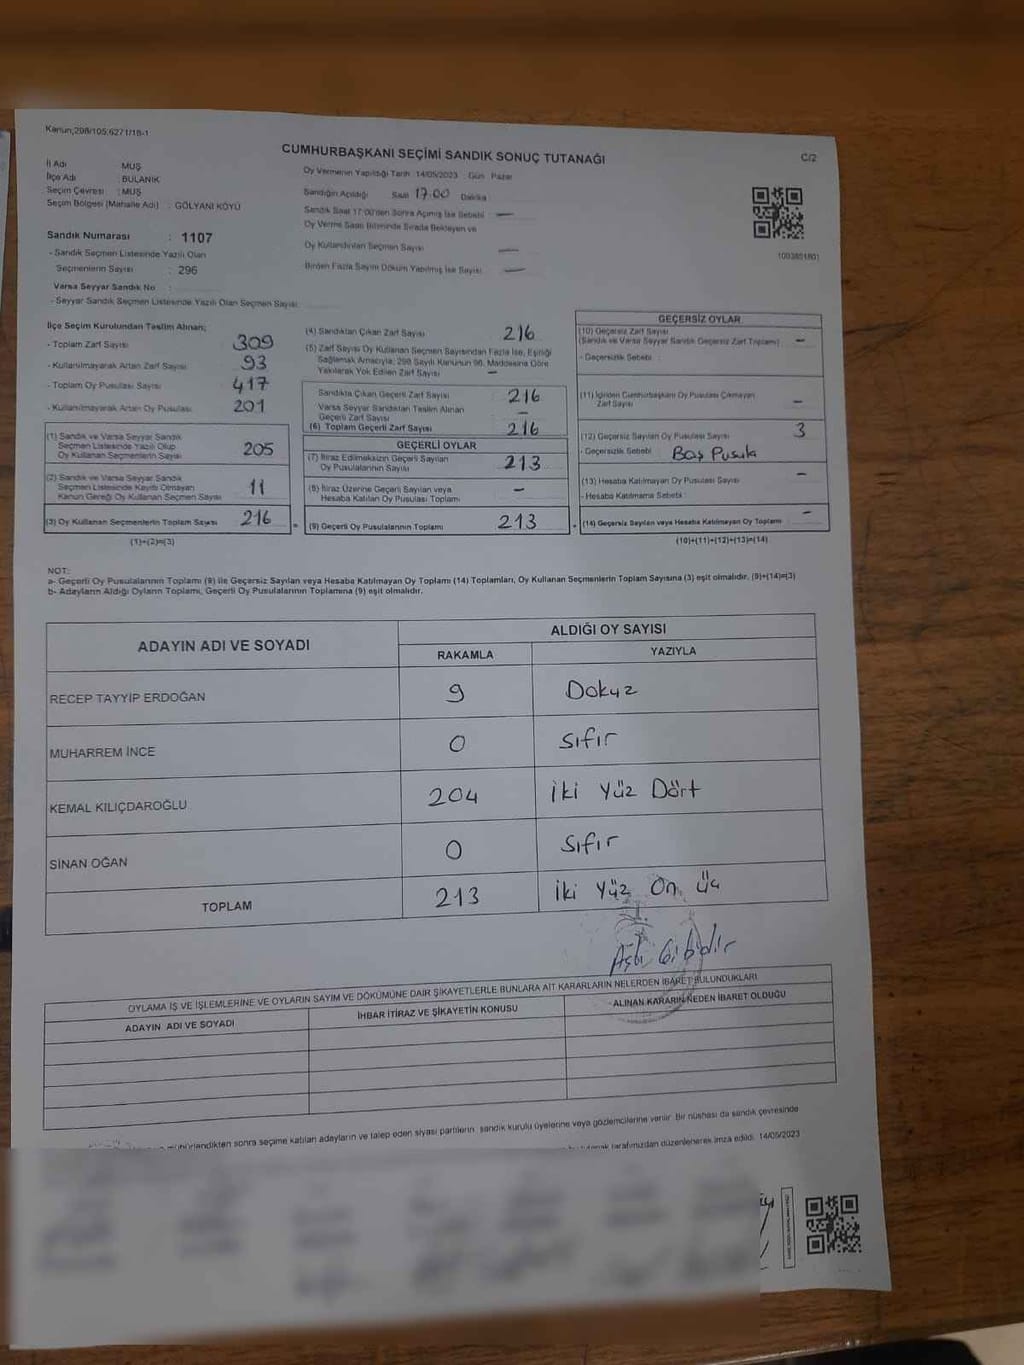 Kanun;298/105;6271/18-1
CUMHURBAŞKANI SEÇİMİ SANDIK SONUÇ TUTANAĞI
C/2
İl Adı : MUŞ
İlçe Adı : BULANIK
Seçim Çevresi : MUŞ
Seçim Bölgesi (Mahalle Adı) : GÖLYANI KÖYÜ
Oy Vermenin Yapıldığı Tarih : 14/05/2023 Gün : Pazar
Sandığın Açıldığı Saat 17:00 Dakika
Sandık Saat 17:00'den Sonra Açılmış İse Sebebi : —
Oy Verme Saati Bitiminde Sırada Bekleyen ve
Oy Kullandırılan Seçmen Sayısı —
Birden Fazla Sayım Döküm Yapılmış İse Sayısı : —
Sandık Numarası : 1107
- Sandık Seçmen Listesinde Yazılı Olan
Seçmenlerin Sayısı : 296
Varsa Seyyar Sandık No :
- Seyyar Sandık Seçmen Listesinde Yazılı Olan Seçmen Sayısı:
İlçe Seçim Kurulundan Teslim Alınan;
- Toplam Zarf Sayısı 309
- Kullanılmayarak Artan Zarf Sayısı 93
- Toplam Oy Pusulası Sayısı 417
- Kullanılmayarak Artan Oy Pusulası 201
(1) Sandık ve Varsa Seyyar Sandık
Seçmen Listesinde Yazılı Olup
Oy Kullanan Seçmenlerin Sayısı 205
(2) Sandık ve Varsa Seyyar Sandık
Seçmen Listesinde Kayıtlı Olmayan
Kanun Gereği Oy Kullanan Seçmen Sayısı 11
(3) Oy Kullanan Seçmenlerin Toplam Sayısı 216
(1)+(2)=(3)
(4) Sandıktan Çıkan Zarf Sayısı 216
(5) Zarf Sayısı Oy Kullanan Seçmen Sayısından Fazla İse, Eşitliği
Sağlamak Amacıyla; 298 Sayılı Kanunun 98. Maddesine Göre
Yakılarak Yok Edilen Zarf Sayısı —
Sandıkta Çıkan Geçerli Zarf Sayısı 216
Varsa Seyyar Sandıktan Teslim Alınan
Geçerli Zarf Sayısı —
(6) Toplam Geçerli Zarf Sayısı 216
GEÇERLİ OYLAR
(7) İtiraz Edilmeksizin Geçerli Sayılan
Oy Pusulalarının Sayısı 213
(8) İtiraz Üzerine Geçerli Sayılan veya
Hesaba Katılan Oy Pusulası Toplamı —
(9) Geçerli Oy Pusulalarının Toplamı 213
GEÇERSİZ OYLAR
(10) Geçersiz Zarf Sayısı
(Sandık ve Varsa Seyyar Sandık Geçersiz Zarf Toplamı) —
- Geçersizlik Sebebi :
(11) İçinden Cumhurbaşkanı Oy Pusulası Çıkmayan
Zarf Sayısı —
(12) Geçersiz Sayılan Oy Pusulası Sayısı 3
- Geçersizlik Sebebi : Boş Pusula
(13) Hesaba Katılmayan Oy Pusulası Sayısı —
- Hesaba Katılmama Sebebi :
(14) Geçersiz Sayılan veya Hesaba Katılmayan Oy Toplamı —
(10)+(11)+(12)+(13)=(14)
NOT:
a- Geçerli Oy Pusulalarının Toplamı (9) ile Geçersiz Sayılan veya Hesaba Katılmayan Oy Toplamı (14) Toplamları, Oy Kullanan Seçmenlerin Toplam Sayısına (3) eşit olmalıdır. (9)+(14)=(3)
b- Adayların Aldığı Oyların Toplamı, Geçerli Oy Pusulalarının Toplamına (9) eşit olmalıdır.
ADAYIN ADI VE SOYADI
ALDIĞI OY SAYISI
RAKAMLA YAZIYLA
RECEP TAYYİP ERDOĞAN 9 Dokuz
MUHARREM İNCE 0 Sıfır
KEMAL KILIÇDAROĞLU 204 İki Yüz Dört
SİNAN OĞAN 0 Sıfır
TOPLAM 213 İki Yüz On Üç
Aslı Gibidir
OYLAMA İŞ VE İŞLEMLERİNE VE OYLARIN SAYIM VE DÖKÜMÜNE DAİR ŞİKAYETLERLE BUNLARA AİT KARARLARIN NELERDEN İBARET BULUNDUKLARI
ADAYIN ADI VE SOYADI
İHBAR İTİRAZ VE ŞİKAYETİN KONUSU
ALINAN KARARIN NEDEN İBARET OLDUĞU
mühürlendikten sonra seçime katılan adayların ve talep eden siyasi partilerin, sandık kurulu üyelerine veya gözlemcilerine verilir. Bir nüshası da sandık çevresinde
tutanak tarafımızdan düzenlenerek imza edildi. 14/05/2023